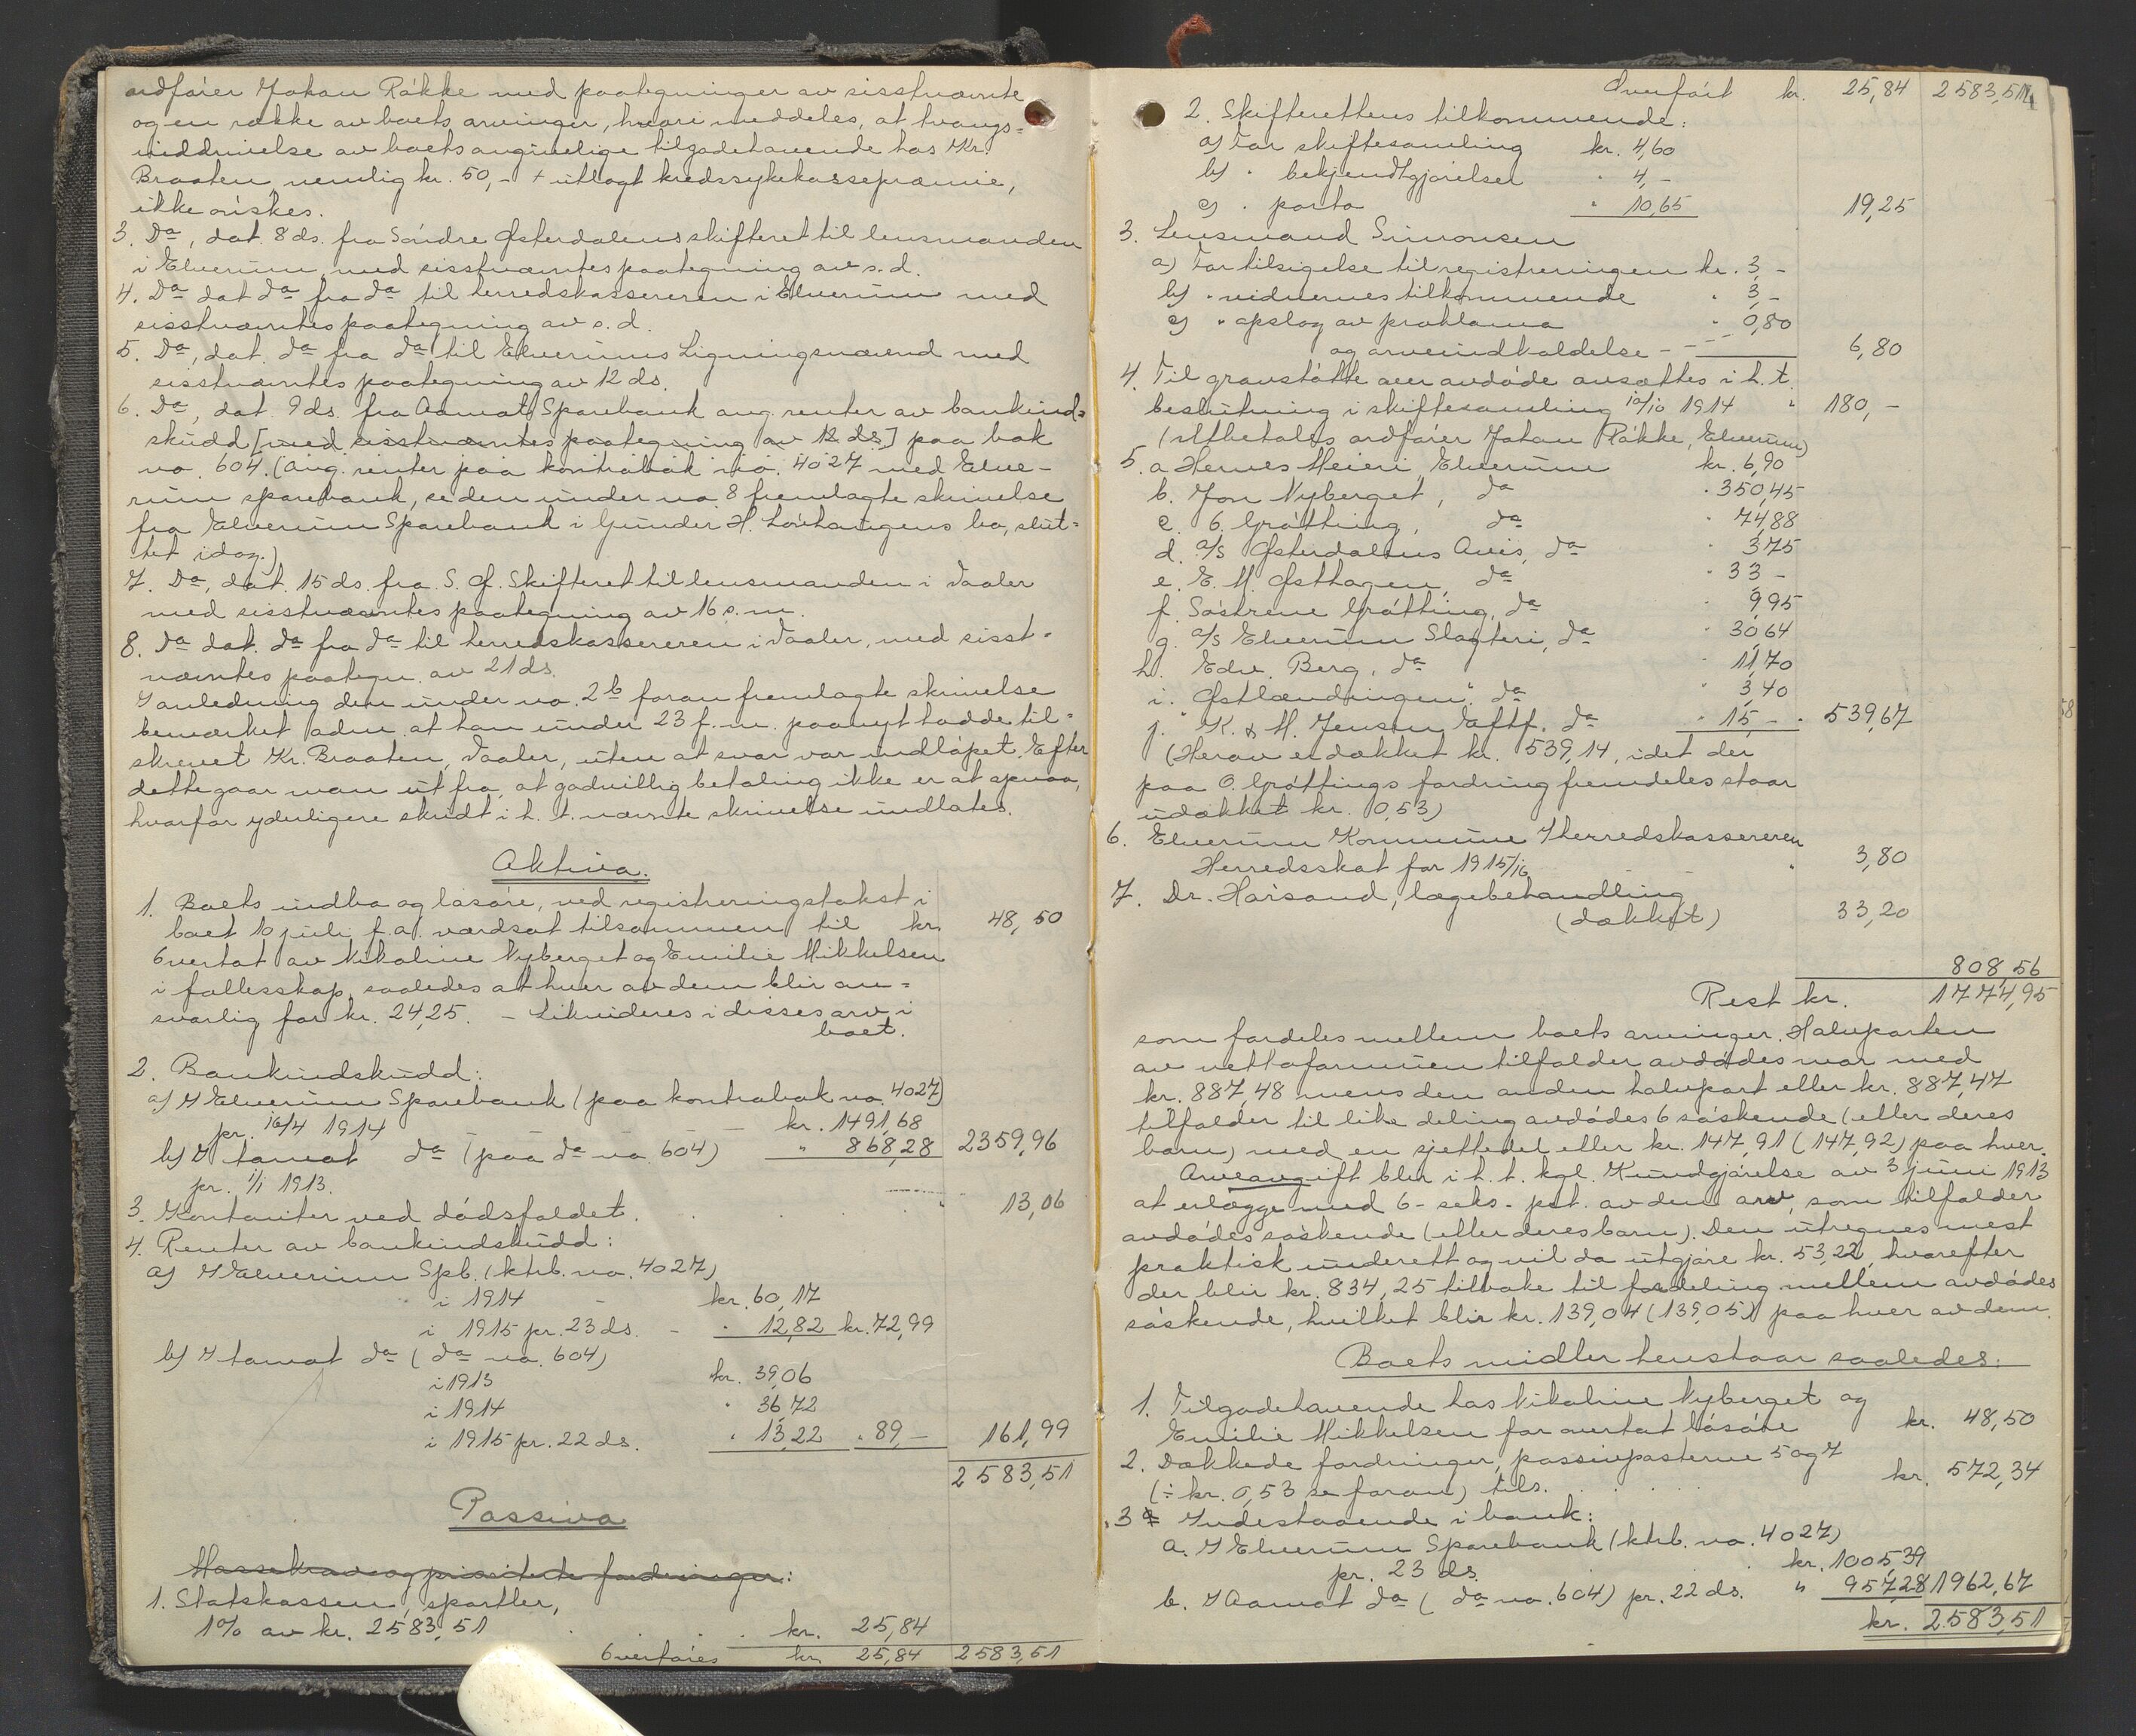 ordfører Johan Røkke med paategninger av sisstnævnte
og en række av boets arvinger, hvori meddeles, at tvangs=
inddrivelse av boets angivelige tilgodehavende hos Kr.
Braaten, nemlig kr. 50,- + utlagt kredssykekassepræmie,
ikke ønskes.
3. Do, dat. 8 ds. fra Søndre Østerdalens skifteret til lensmanden
i Elverum, med sisstnævntes paategning av s. d.
4. Do dat do fra do til herredskassereren i Elverum med
sisstnævntes paategning av s. d.
5. Do, dat. do fra do til Elverums Ligningsnævnd med
sisstnævntes paategning av 12 ds.
6. Do, dat. 9 ds. fra Aamot Sparebank ang. renter av bankind=
skudd [med sisstnævntes paategning av 12 ds] paa bok
no. 604. (Ang. renter paa kontrabok no. 4027 med Elve-
rum sparebank, se den under no 8 fremlagte skrivelse
fra Elverum Sparebank i Gunder H. Løvhaugens bo, slut=
tet idag.)
7. Do, dat. 15 ds. fra S. Ø. Skifteret til lensmanden i Vaaler
med sisstnævntes paategning av 16 s. m.
8. Do dat. do fra do til herredskassereren i Vaaler, med sisst-
nævntes paategn. av 21 ds.
I anledning den under no. 2 b foran fremlagte skrivelse
bemærket adm. at han under 23 f. m. paanyt hadde til=
skrevet Kr. Braaten, Vaaler, uten at svar var indløpet. Efter
dette gaar man ut fra, at godvillig betaling ikke er at opnaa,
hvorfor yderligere skridt i h. t. nævnte skrivelse undlates.
Aktiva.
1. Boets indbo og løsøre, ved registreringstakst i
boet 10 juli f. a. værdsat tilsammen til kr. 48,50
Overtat av Nikoline Nyberget og Emilie Mikkelsen
i fællesskap, saaledes at hver av dem blir an=
svarlig for kr. 24,25. - Likvideres i disses arv i
boet.
2. Bankindskudd:
a) I Elverum Sparebank (paa kontrabok no. 4027)
pr. 16/4 1914 - kr. 1491,68
b) I Aamot do (paa do no. 604) " 868,28 2359,96
pr. 1/1 1913.
3. Kontanter ved dødsfaldet. . . . " 13,06
4. Renter av bankindskudd:
a) I Elverum Spb. (ktrb. no. 4027)
i 1914 - kr. 60,17
i 1915 pr. 23 ds. - " 12,82 kr. 72,99
b) I Aamot do (do no. 604)
i 1913 kr. 39,06
i 1914 " 36,72
i 1915 pr. 22 ds. " 13,22 " 89,- 161,99
2583,51
Passiva
Massekrav og prioriterte fordringer:
1. Statskassen, sportler,
1% av kr. 2583,51 . . . kr. 25,84
Overføres kr. 25,84 2583,51
Overført kr. 25,84 2583,51
2. Skifterettens tilkommende:
a) For skiftesamling kr. 4,60
b) " bekjendtgjørelser " 4,-
c) " porto " 10,65 19,25
3. Lensmand Simonsen
a) For tilsigelse til registreringen kr. 3,-
b) " vidnernes tilkommende " 3,-
c) " opslag av proklama " 0,80
og arveindkaldelse - 6,80
4. Til gravstøtte over avdøde ansættes i h. t.
beslutning i skiftesamling 10/10 1914 " 180,-
(Utbetales ordfører Johan Røkke, Elverum)
5. a Hernes Meieri, Elverum kr. 6,90
b. Jon Nyberget, do " 350,45
c. O. Grøtting, do " 74,88
d. A/S Østerdalens Avis, do " 3,75
e. E. M. Østhagen, do " 33-
f. Søstrene Grøtting, do " 9,95
g. A/S Elverum Slagteri, do " 30,64
h. Edv. Berg, do " 11,70
i. "Østlændingen", do " 3,40
j. K. & M. Jensen Eftf. do " 15,- " 539,67
(Herav er dækket kr. 539,14, idet der
paa O. Grøttings fordring fremdeles staar
udækket kr. 0,53)
6. Elverum Kommune v/herredskassereren
Herredsskat for 1915/16 " 3,80
7. Dr. Harsand, lægebehandling
(dækket) 33,20
808,56
Rest kr. 1774,95
som fordeles mellem boets arvinger. Halvparten
av nettoformuen tilfalder avdødes mor med
kr. 887,48 mens den anden halvpart eller kr. 887,47
tilfalder til like deling avdødes 6 søskende (eller deres
barn) med en sjettedel eller kr. 147,91 (147,92) paa hver.
Arveavgift blir i h. t. kgl. Kundgjørelse av 3 juni 1913
at erlægge med 6 - seks - pct. av den arv, som tilfalder
avdødes søskende (eller deres barn). Den utregnes mest
praktisk underett og vil da utgjøre kr. 53,22, hvorefter
der blir kr. 834,25 tilbake til fordeling mellem avdødes
søskende, hvilket blir kr. 139,04 (139,05) paa hver av dem.
Boets midler henstaar saaledes:
1. Tilgodehavende hos Nikoline Nyberget og
Emilie Mikkelsen for overtat løsøre kr. 48,50
2. Dækkede fordringer, passivposterne 5 og 7
(÷ kr. 0,53 se foran) tils. . . . . kr. 572,34
3 Indestaaende i bank:
a. I Elverum Sparebank (ktrb. no. 4027)
pr. 23 ds. . . kr. 1005,39
b. I Aamot do (do no. 604) pr. 22 ds. " 957,28 1962,67
kr. 2583,51